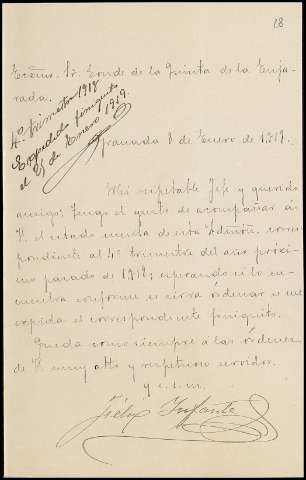 28
Excmo. Sr. Conde de la Quinta de la Enja-
rada.
4º trimestre 1918
Expedido finiquito
el 15 de Enero 1919.
Granada 8 de Enero de 1919.
Mui respetable Jefe y querido
amigo: Tengo el gusto de acompañar á
V. el estado cuenta de esta Admón. corres-
pondiente al 4º trimestre del año próxi-
mo pasado de 1918; esperando si lo en-
cuentra conforme se sirva órdenar se me
expida el correspondiente finiquito.
Queda como siempre a las órdenes
de V. muy atto y respetuoso servidor.
q e. s. m.
Félix Infante